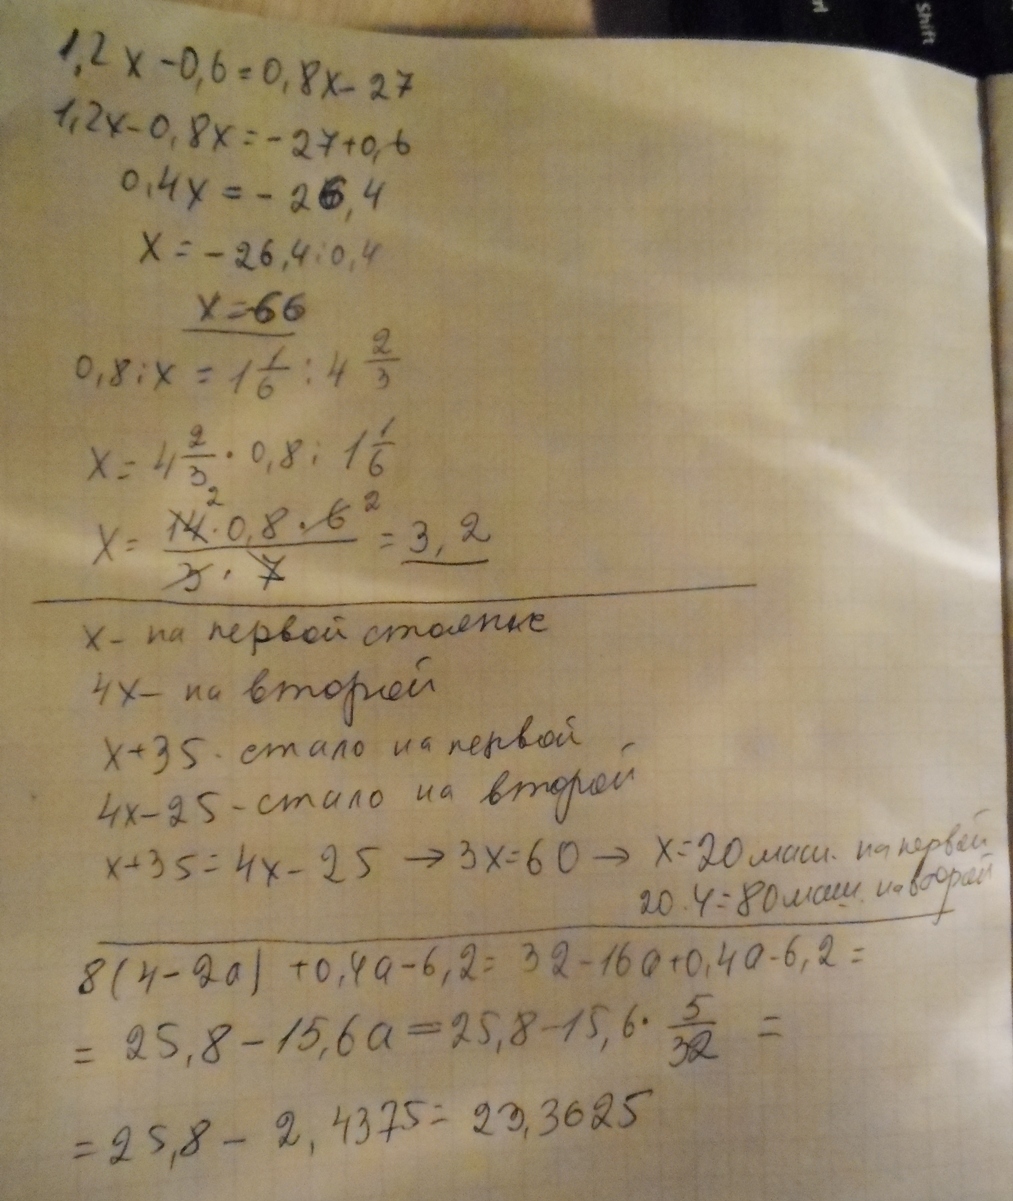 Shift
rl
1,2x-0,6=0,8x-27
1,2x-0,8x=-27+0,6
0,4x=-26,4
x=-26,4:0,4
x=-66
0,8:x = 1 1/6 : 4 2/3
x= 4 2/3 · 0,8 : 1 1/6
x= 14 2 · 0,8 · 6 2 / 3 · 7 = 3,2
x- на первой стоянке
4x- на второй
x+35- стало на первой
4x-25- стало на второй
x+35=4x-25 → 3x=60 → x=20 маш. на первой
20·4=80 маш. на второй
8(4-2a)+0,4a-6,2= 32-16a+0,4a-6,2=
= 25,8-15,6a=25,8-15,6· 5/32 =
=25,8-2,4375=23,3625